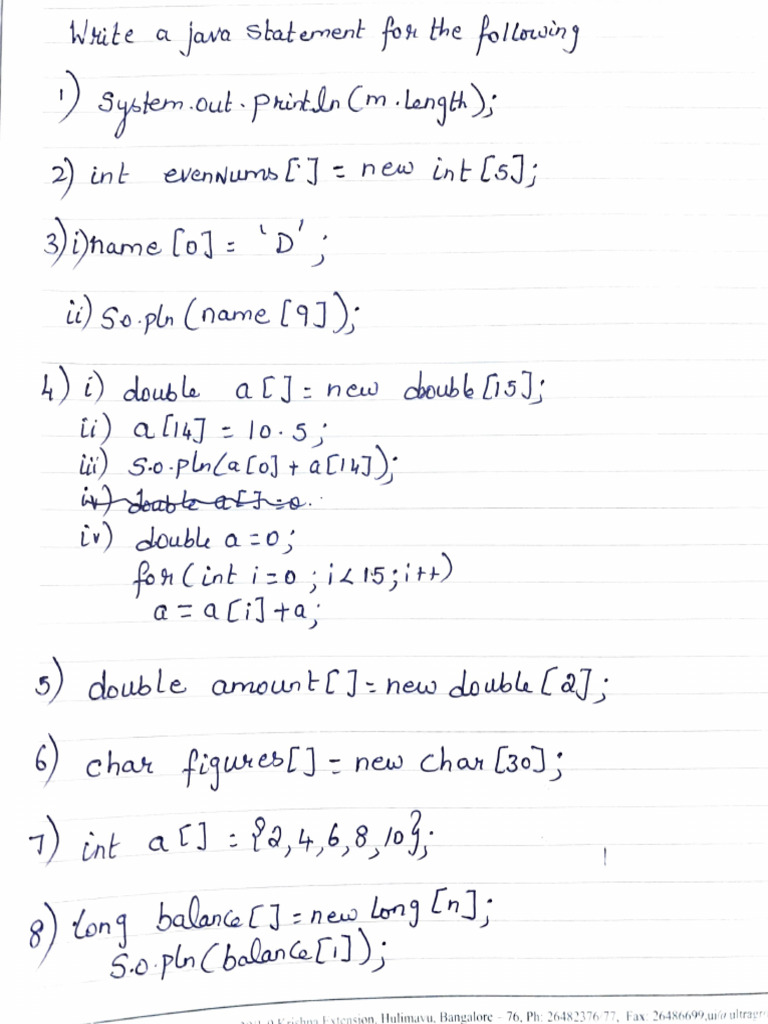 Write a java statement for the following
1) System.out.println(m.length);
2) int evenNums[] = new int[5];
3) i) name[0] = 'D';
ii) S.o.pln(name[9]);
4) i) double a[] = new double[15];
ii) a[14] = 10.5;
iii) S.o.pln(a[0] + a[14]);
iv) double a[] = 0.
iv) double a=0;
for(int i=0; i<15; i++)
a = a[i]+a;
5) double amount[] = new double[2];
6) char figures[] = new char[30];
7) int a[] = {2,4,6,8,10};
8) long balance[] = new long[n];
S.o.pln(balance[i]);
Krishna Extension, Hulimavu, Bangalore - 76, Ph: 26482376 77, Fax: 26486699,